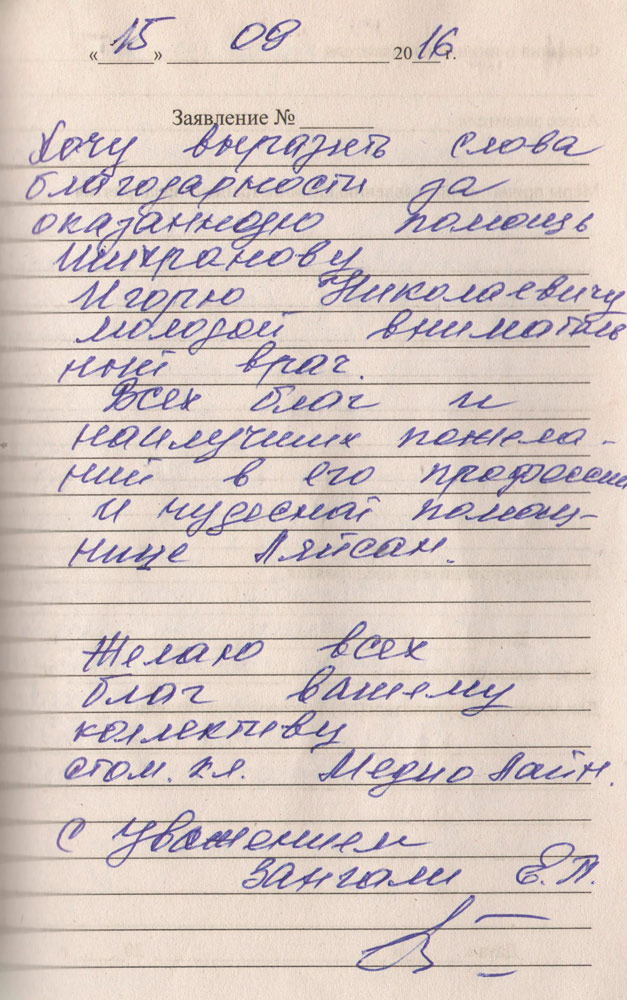 «15» 09 2016 г.
Заявление №
Хочу выразить слова
благодарности за
оказанную помощь
Шихранову
Игорю Николаевичу
молодой вниматель
ный врач.
Всех благ и
наилучших пожела-
ний в его профессии
и чудесной помощ-
нице Ляйсан.
Желаю всех
благ вашему
коллективу
стом. кл. Медио Лайн.
С Уважением
Зангали Е.П.